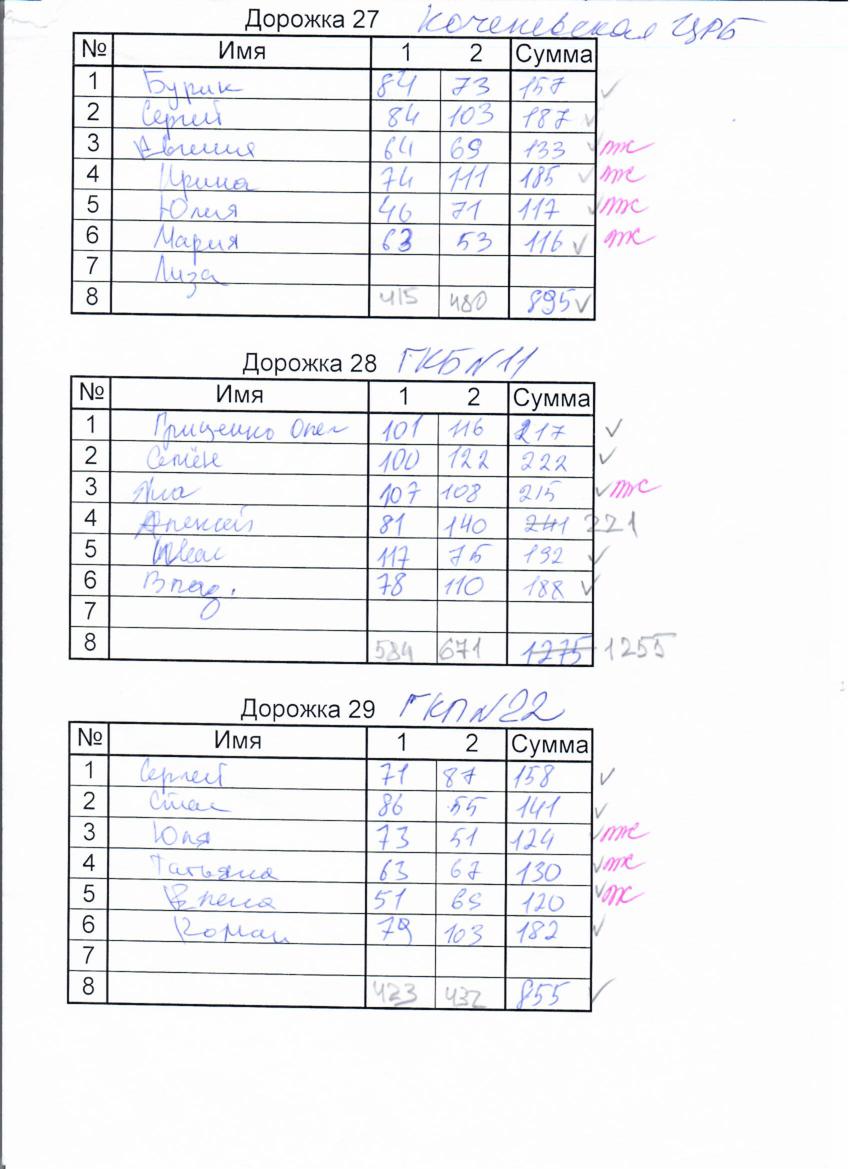 Дорожка 27 Коченевская ЦРБ
№ Имя 1 2 Сумма
1 Бурик 84 73 157 ✓
2 Сергей 84 103 187 ✓
3 Евгения 64 69 133 ✓ ж
4 Ирина 74 111 185 ✓ ж
5 Юлия 46 71 117 ✓ ж
6 Мария 63 53 116 ✓ ж
7 Лиза
8 415 480 895 ✓
Дорожка 28 ГКБ №11
№ Имя 1 2 Сумма
1 Грищенко Олег 101 116 217 ✓
2 Семён 100 122 222 ✓
3 107 108 215 ✓ ж
4 Алексей 81 140 241 221
5 Иван 117 75 192 ✓
6 Влад. 78 110 188 ✓
7
8 584 671 1275 1255
Дорожка 29 ГКП №22
№ Имя 1 2 Сумма
1 Сергей 71 87 158 ✓
2 Стас 86 55 141 ✓
3 Юля 73 51 124 ✓ ж
4 Татьяна 63 67 130 ✓ ж
5 Елена 51 69 120 ✓ ж
6 Роман 79 103 182 ✓
7
8 423 432 855 ✓